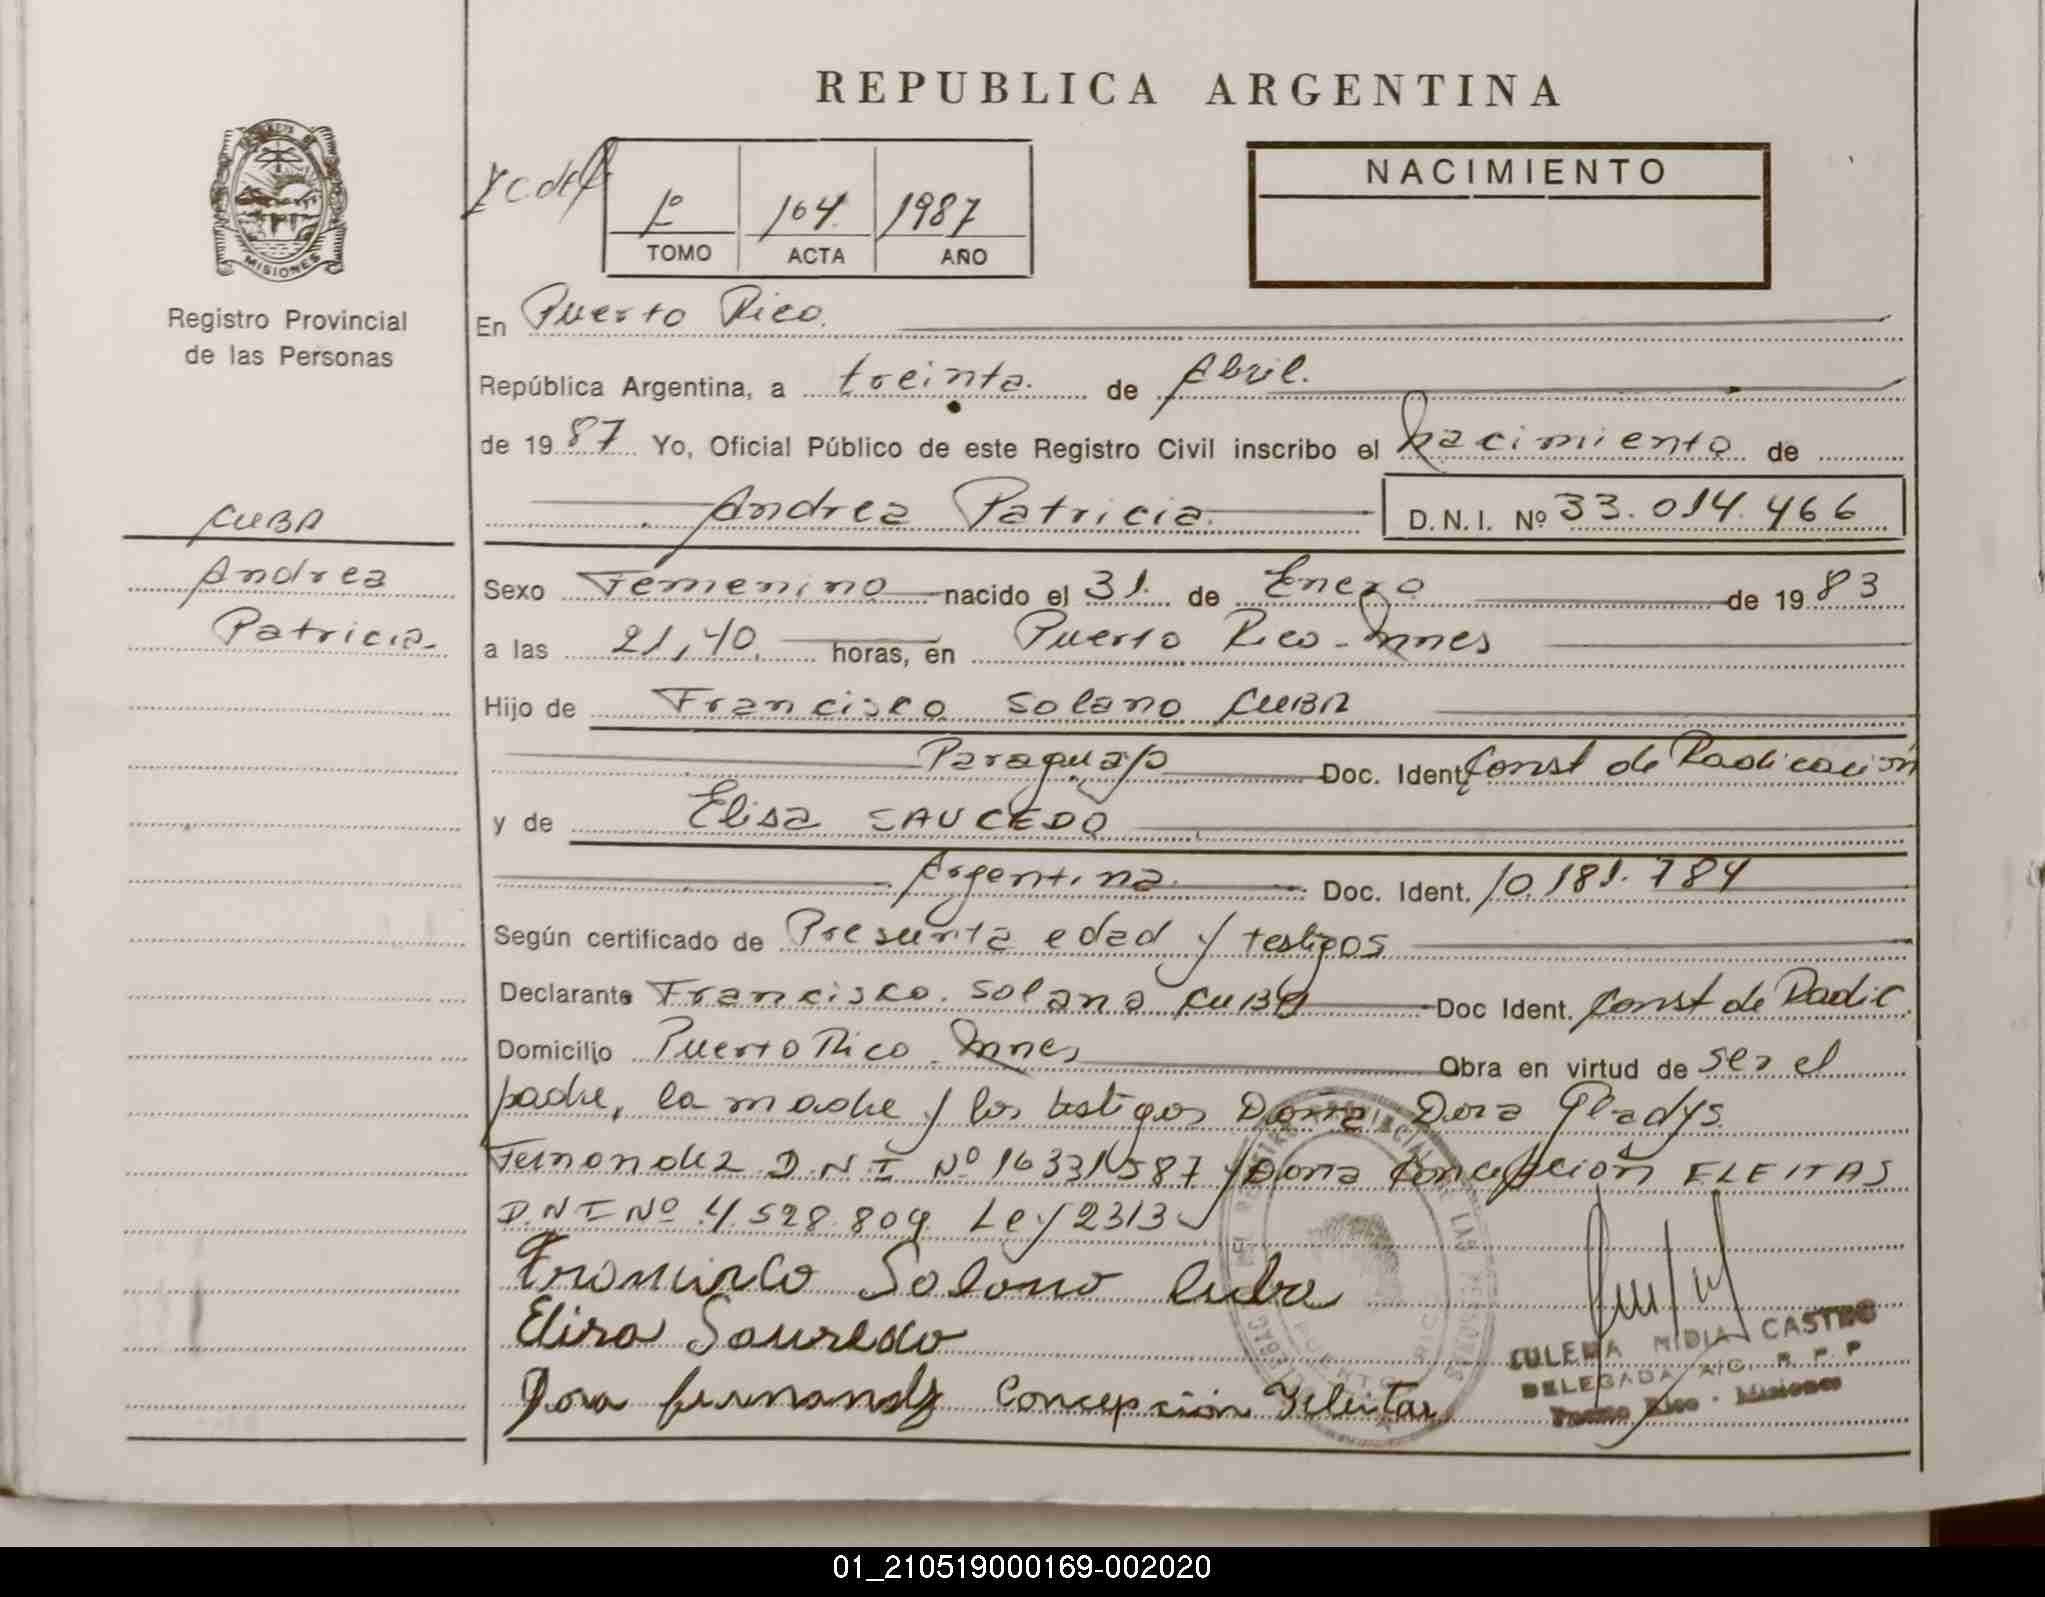 REPUBLICA ARGENTINA
MISIONES
Registro Provincial
de las Personas
1º 164 1987
TOMO ACTA AÑO
NACIMIENTO
En Puerto Rico.
República Argentina, a treinta. de Abril.
de 19 87 Yo, Oficial Público de este Registro Civil inscribo el nacimiento de
Andrea Patricia. D.N.I. Nº 33.014.466
CUBA
Andrea
Patricia.
Sexo Femenino nacido el 31. de Enero de 19 83
a las 21,40. horas, en Puerto Rico - Mnes
Hijo de Francisco Solano CUBA
Paraguayo Doc. Ident. Const de Radicación
y de Elisa SAUCEDO
Argentina. Doc. Ident. 10.181.784
Según certificado de Presunta edad y testigos
Declarante Francisco. Solano CUBA Doc Ident. Const de Radic
Domicilio Puerto Rico - Mnes Obra en virtud de ser el
padre, la madre y los testigos Doña Dora Gladys
Fernandez D.N I Nº 16331587 y Doña Concepción FLEITAS
D.N I Nº 4.528.809 Ley 2313
Francisco Solano Cuba
Elisa Saucedo
Dora Fernandez Concepción Fleitas
ZULEMA NIDIA CASTRO
DELEGADA A/C. R. P. P
Puerto Rico - Misiones
01_210519000169-002020